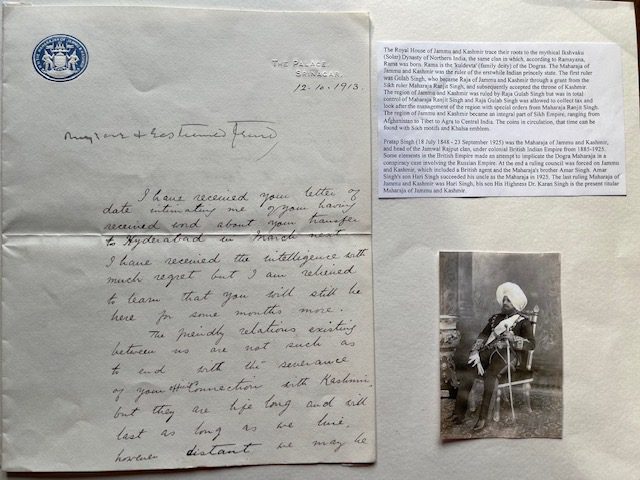 THE PALACE
SRINAGAR.
12.10.1913.
My Dear & Esteemed Friend,
I have received your letter of
date intimating me of your having
received word about your transfer
to Hyderabad in March next.
I have received the intelligence with
much regret but I am relieved
to learn that you will still be
here for some months more.
The friendly relations existing
between us are not such as
to end with the severance
of your official connection with Kashmir,
but they are life long and will
last as long as we live,
however distant we may be
The Royal House of Jammu and Kashmir trace their roots to the mythical Ikshvaku
(Solar) Dynasty of Northern India, the same clan in which, according to Ramayana,
Rama was born. Rama is the 'kuldevta' (family deity) of the Dogras. The Maharaja of
Jammu and Kashmir was the ruler of the erstwhile Indian princely state. The first ruler
was Gulab Singh, who became Raja of Jammu and Kashmir through a grant from the
Sikh ruler Maharaja Ranjit Singh, and subsequently accepted the throne of Kashmir.
The region of Jammu and Kashmir was ruled by Raja Gulab Singh but was in total
control of Maharaja Ranjit Singh and Raja Gulab Singh was allowed to collect tax and
look after the management of the region with special orders from Maharaja Ranjit Singh.
The region of Jammu and Kashmir became an integral part of Sikh Empire, ranging from
Afghanistan to Tibet to Agra to Central India. The coins in circulation, that time can be
found with Sikh motifs and Khalsa emblem.
Pratap Singh (18 July 1848 - 23 September 1925) was the Maharaja of Jammu and Kashmir,
and head of the Jamwal Rajput clan, under colonial British Indian Empire from 1885-1925.
Some elements in the British Empire made an attempt to implicate the Dogra Maharaja in a
conspiracy case involving the Russian Empire. At the end a ruling council was forced on Jammu
and Kashmir, which included a British agent and the Maharaja's brother Amar Singh. Amar
Singh's son Hari Singh succeeded his uncle as the Maharaja in 1925. The last ruling Maharaja of
Jammu and Kashmir was Hari Singh, his son His Highness Dr. Karan Singh is the present titular
Maharaja of Jammu and Kashmir.